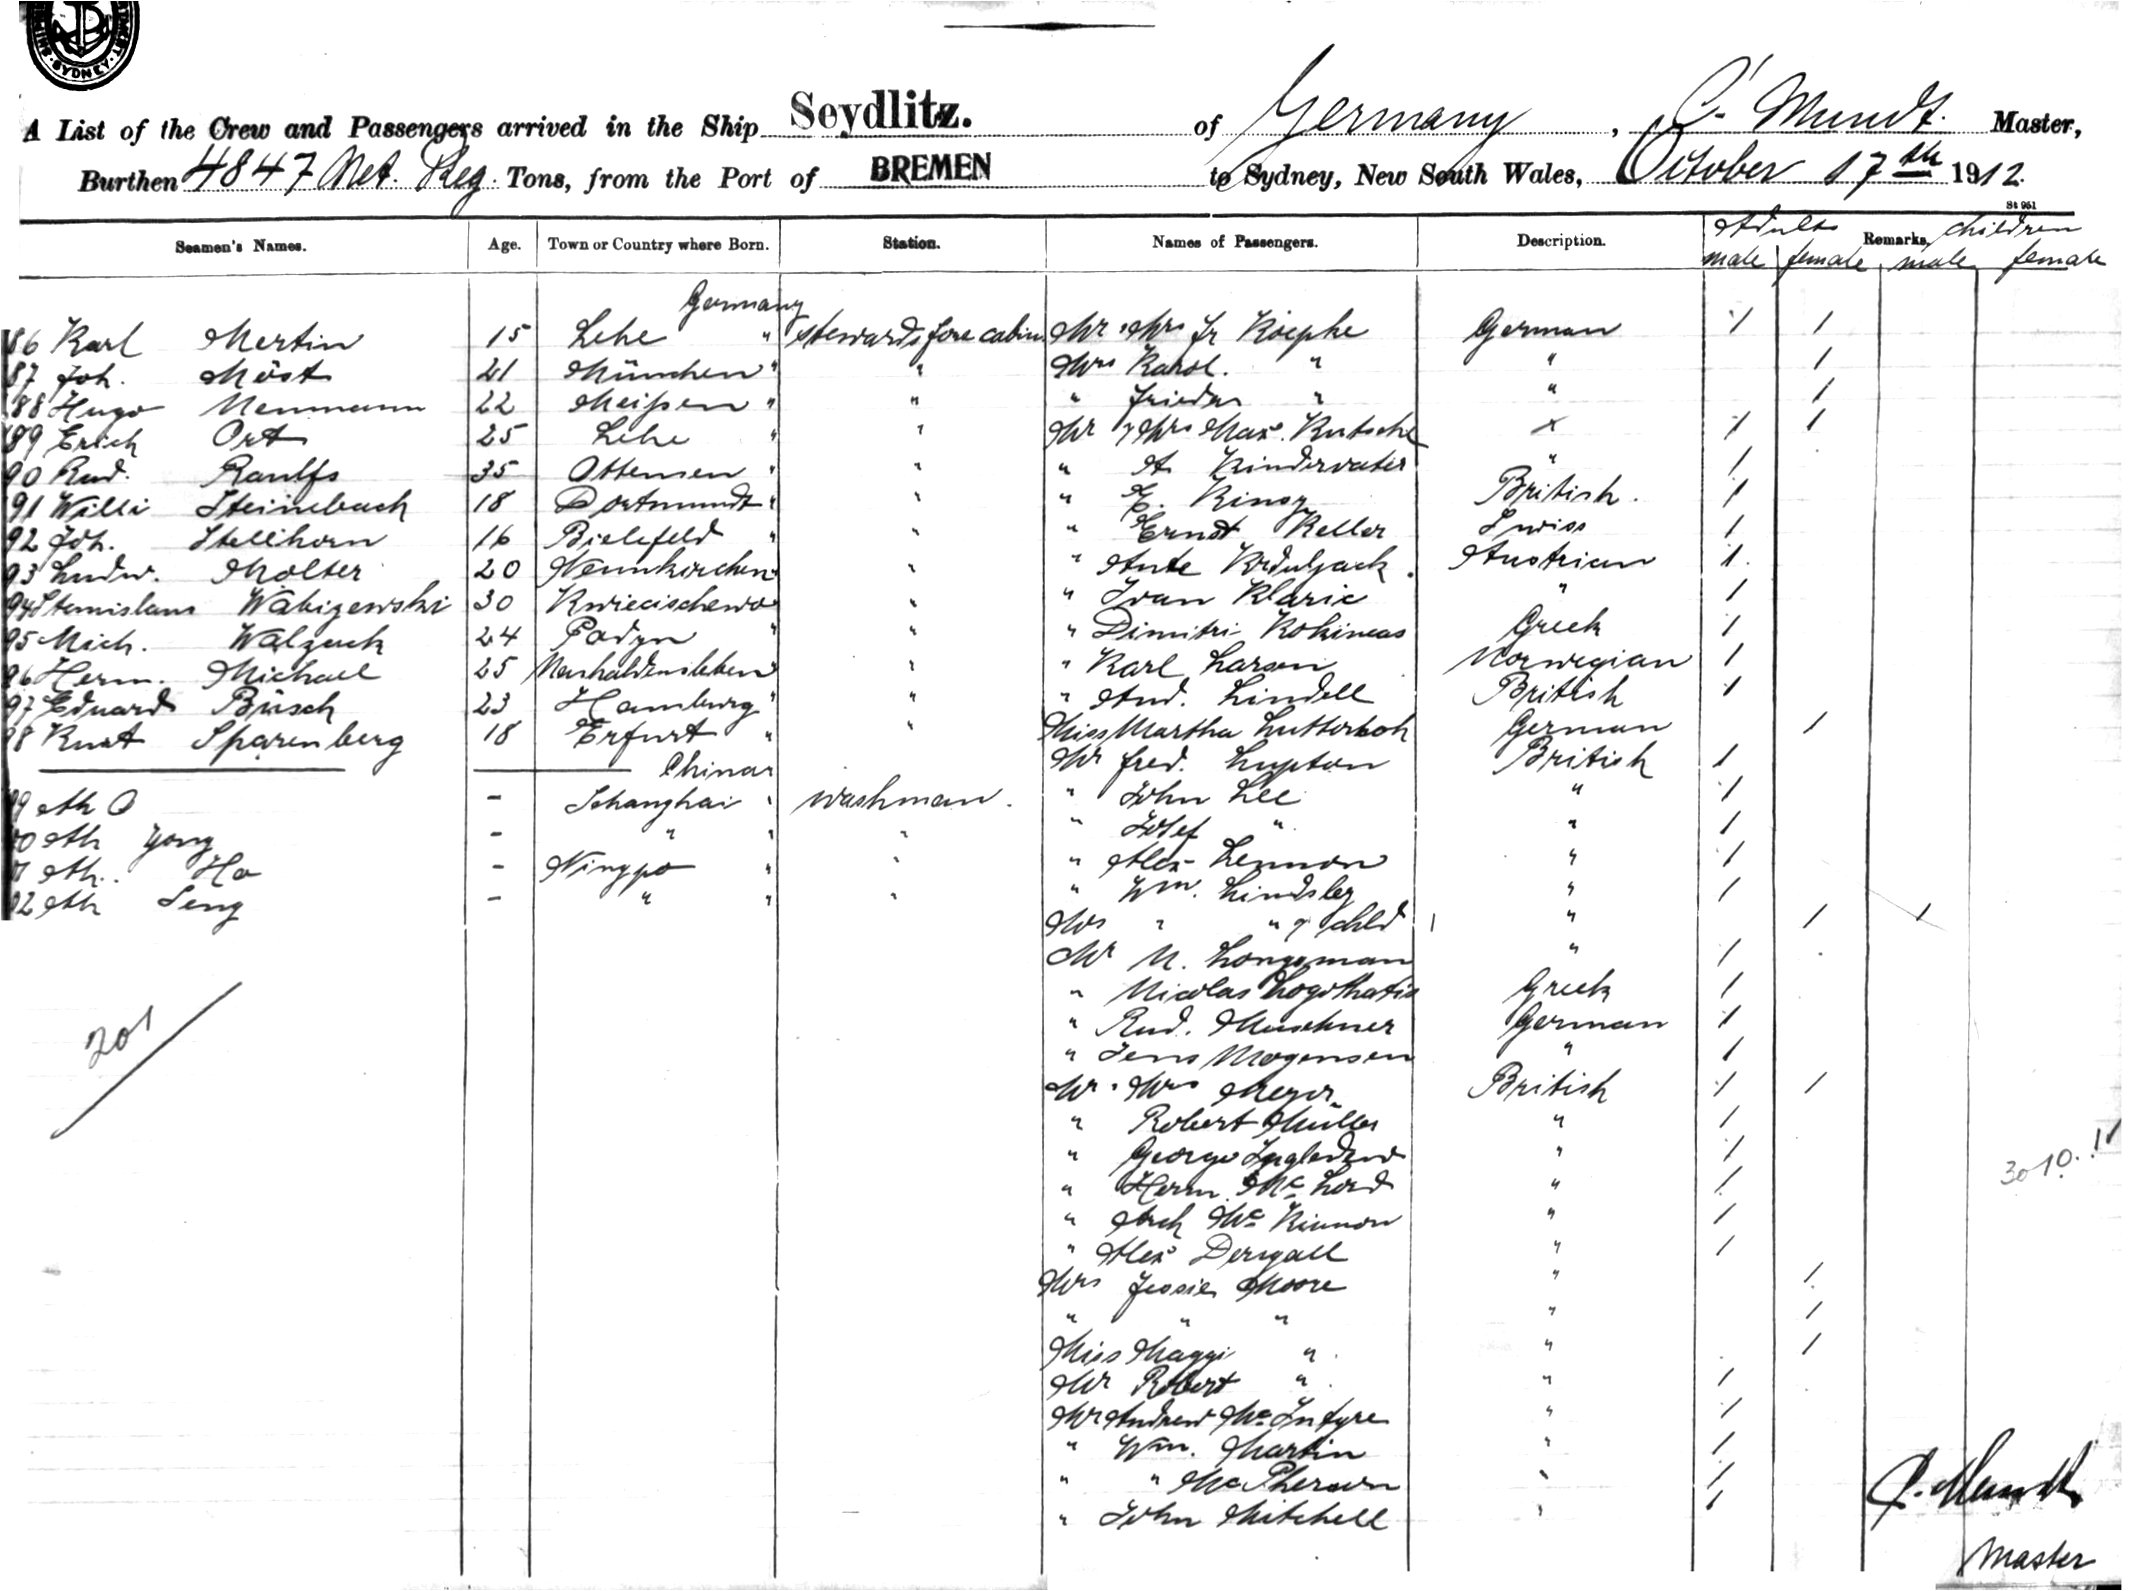 SYDNEY
A List of the Crew and Passengers arrived in the Ship Seydlitz. of Germany, C. Mundt. Master,
Burthen 4847 Net. Reg. Tons, from the Port of BREMEN to Sydney, New South Wales, October 17th 1912.
St 961
Seamen's Names. Age. Town or Country where Born. Station. Names of Passengers. Description. Remarks.
Adults children
male female male female
Germany
86 Karl Mertin 15 Lehe " Stewards fore cabin Mr & Mrs Fr Koepke German 1 1
87 Joh. Möst 21 München " " Mrs Karol. " " 1
88 Hugo Neumann 22 Meißen " " " Frieda " " 1
89 Erich Ort 25 Lehe " " Mr & Mrs Max. Kutsche 1 1
90 Rud. Raulfs 35 Ottensen " " " A. Kindervater " 1
91 Willi Steinebach 18 Dortmund " " " E. British. 1
92 Joh. Stellhorn 16 Bielefeld " " " Ernst Keller Swiss 1
93 Ludw. Molter 20 Neunkirchen " " Ante Austrian 1
94 Stanislaus 30 " " Ivan Klaric " 1
95 Mich. Walzack 24 " " " Dimitri Kokineas Greek 1
96 Herm. Michael 25 Neuhaldensleben " " Karl Larsen Norwegian 1
97 Eduard Büsch 23 Hamburg " " " And. Lindell British 1
98 Kurt Sparenberg 18 Erfurt " " Miss Martha German 1
China Mr Fred. Lupton British 1
99 Ah O - Schanghai " washman. " John Lee " 1
00 Ah Yong - " " " " Josef " " 1
01 Ah. Ho - Ningpo " " " Alex Lennon " 1
02 Ah Seng - " " " " Wm. Lindsley " 1
Mrs " " & child " 1 1
Mr N. Longoman " 1
" Nicolas Logothatis Greek 1
" Rud. Muschner German 1
" Jens Mogensen " 1
201
Mr & Mrs Meyer British 1 1
" Robert Müller " 1
" George " 1
" Herm. Mc Lord " 1
" Arch Mc Kinnon " 1
" Alex 1
Mrs Jessie Moore " 1
" " " " 1
Miss Maggi " " 1
Mr Robert " " 1
Mr Andrew Mc Intyre " 1
" Wm. Martin " 1
" " Mc Pherson " 1
" John Mitchell " 1
30 10. 1 1
C. Mundt
Master